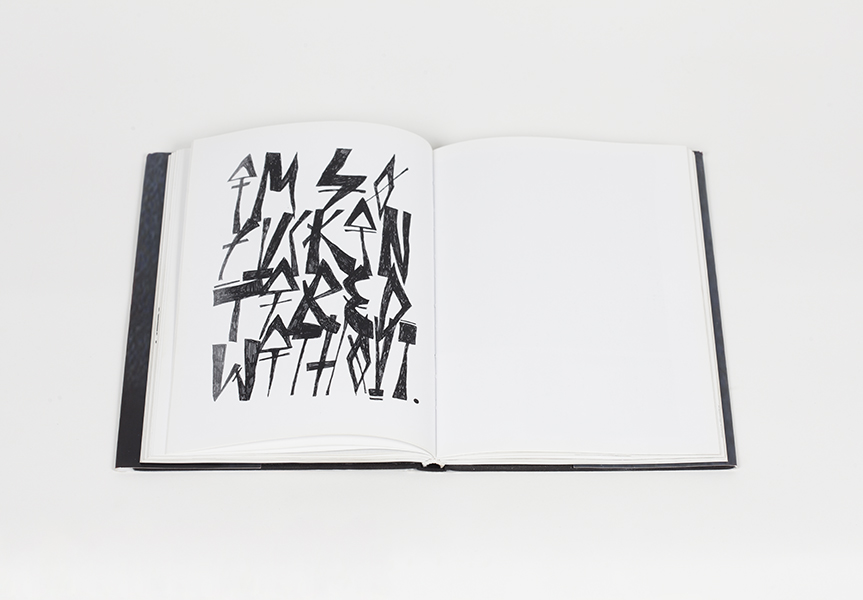 IM SO
FUCKIN
TIRED
WITHOUT.